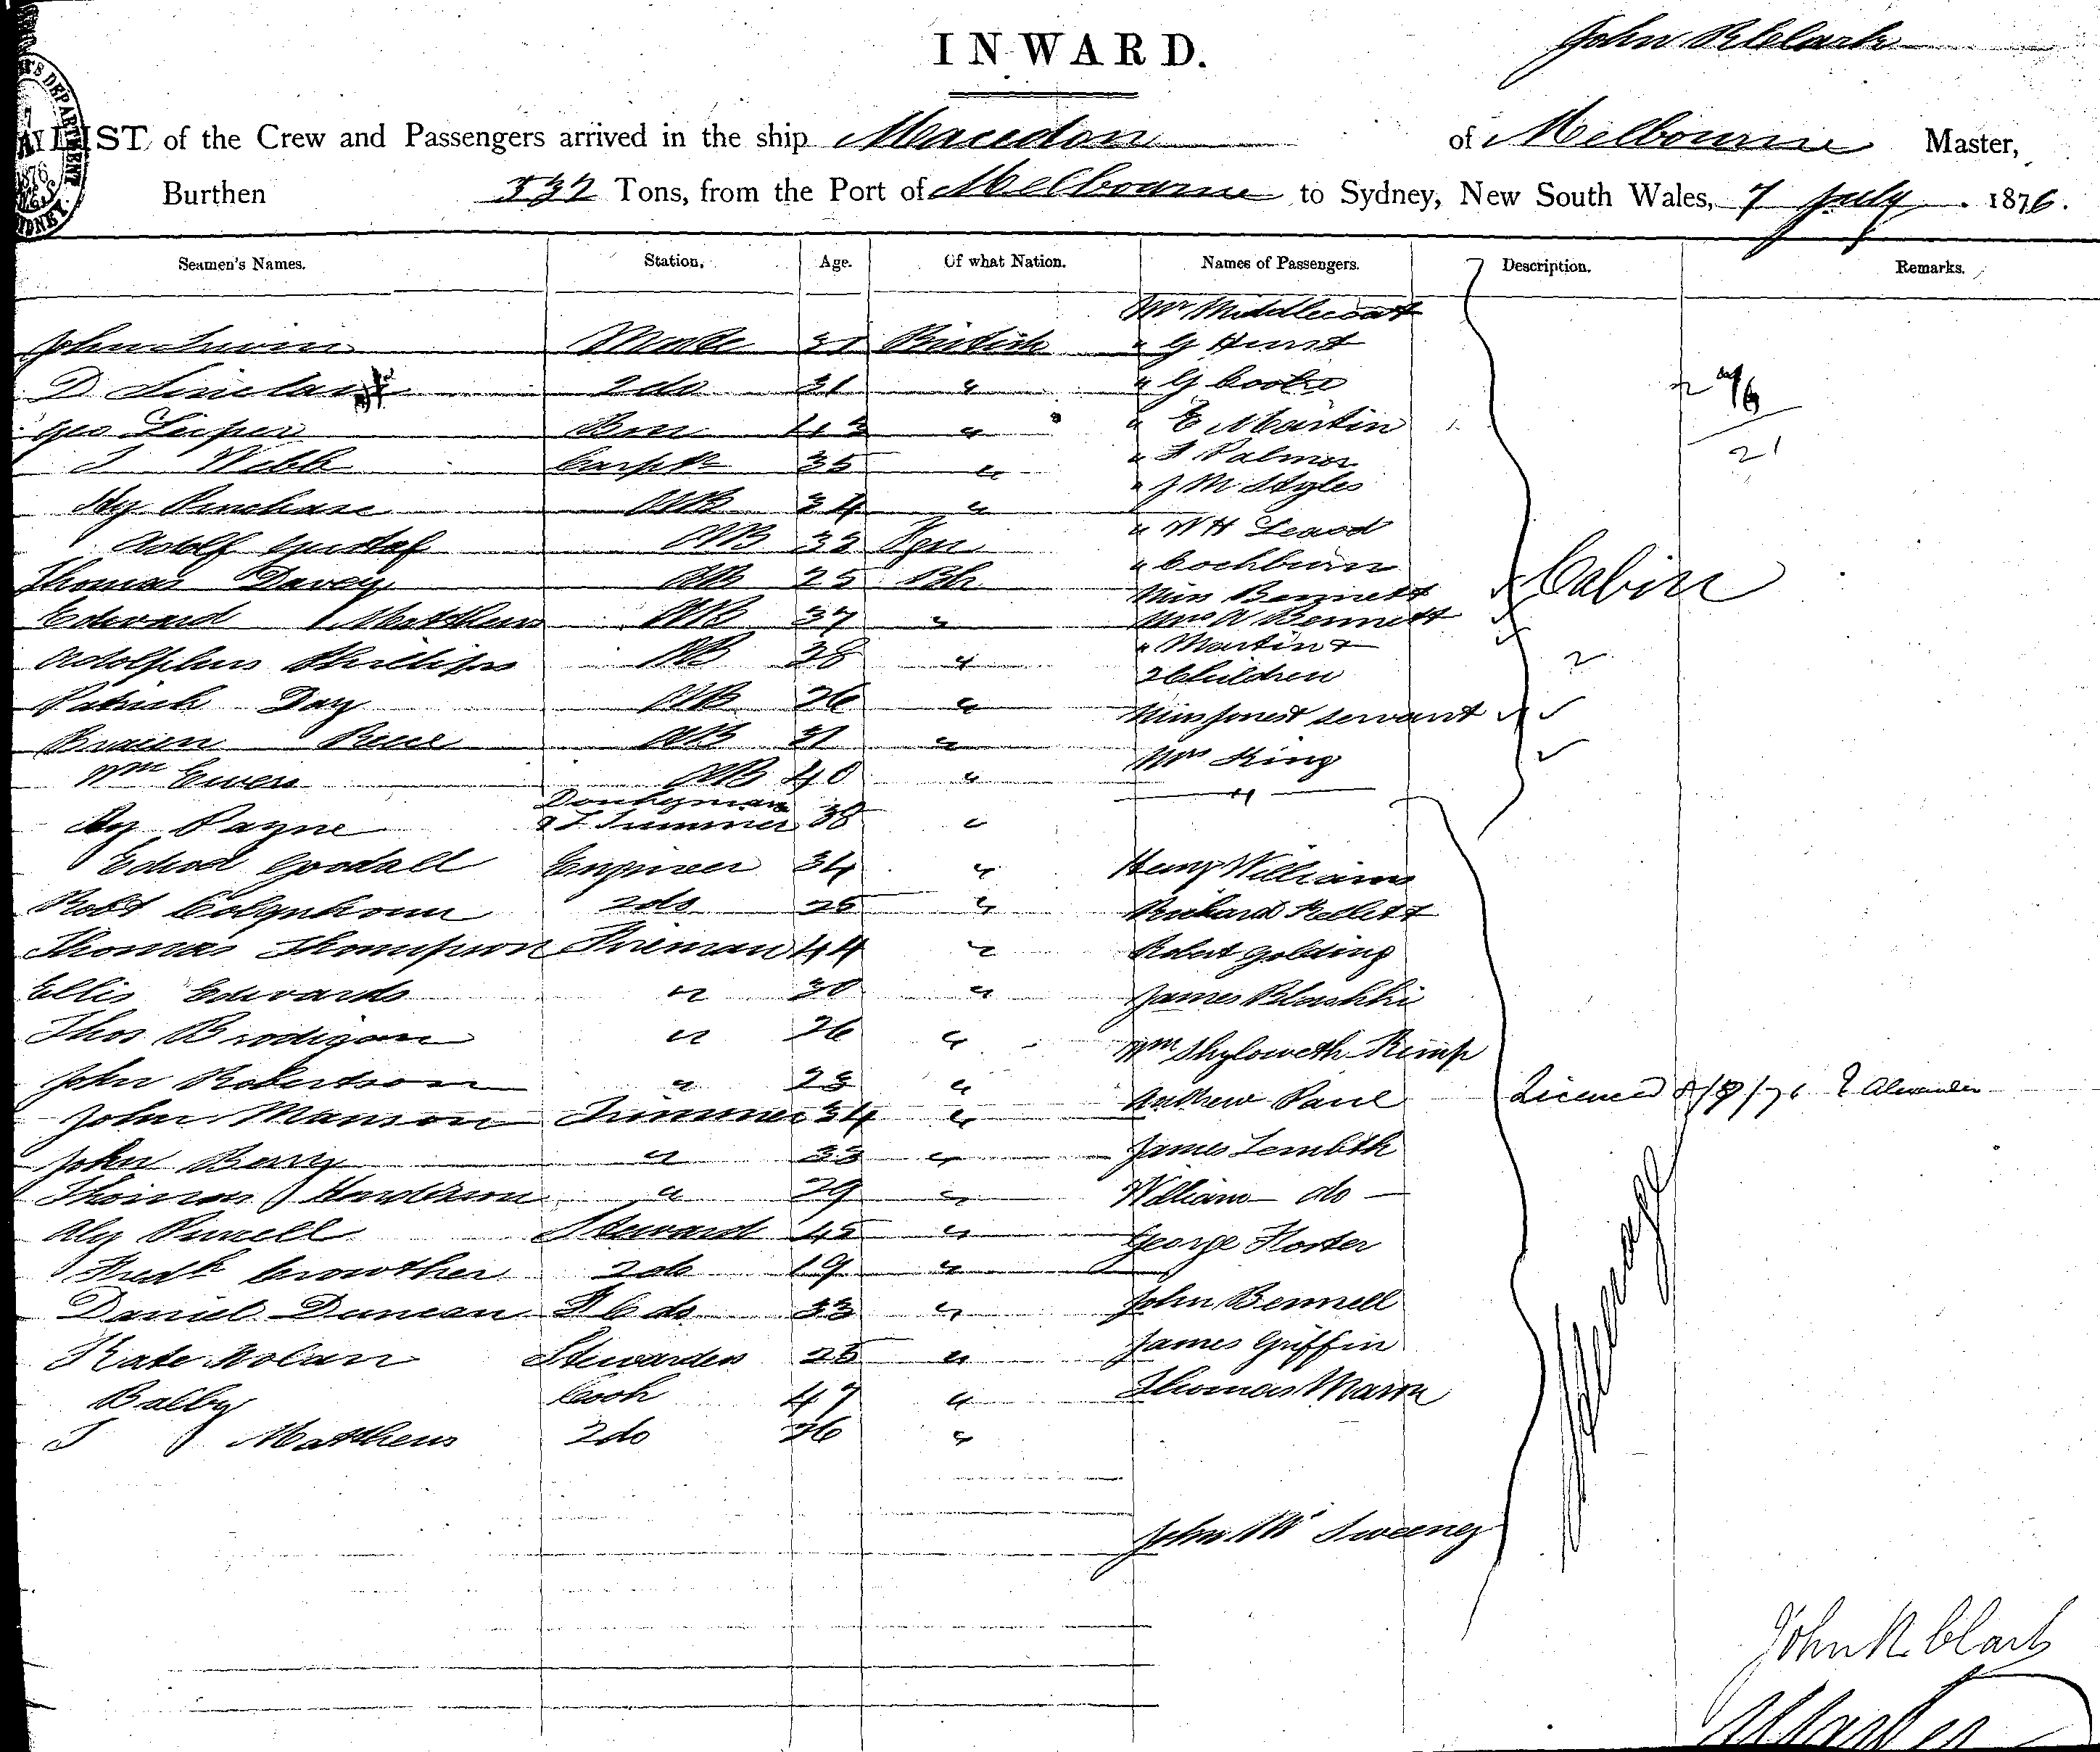 INWARD.
John R Clark
LIST of the Crew and Passengers arrived in the ship Macedon of Melbourne Master,
Burthen 532 Tons, from the Port of Melbourne to Sydney, New South Wales, 7 July 1876.
Seamen's Names. Station. Age. Of what Nation. Names of Passengers. Description. Remarks.
Mr Middlecoat
John Mate 31 British " G Hurst
D Sinclair 2 do 31 " " G Cooke
Geo Leiper Bsn 43 " " E Martin
J Webb Carptr 35 " " F Palmer
" J M Styles
Hy Purchase AB 34 "
Adolf Gustaf AB 33 Fgn " W H Leaod
" Cockburn
Thomas Davey AB 25 Bh Miss Bennett Cabin
Edward Matthews AB 37 " Mrs W Bennett
" Martin +
Adolphus Phillips AB 28 " 2 Children 2
Patrick Day AB 26 " Miss Jones servant
Price AB 31 "
Mrs King
Wm Ewers AB 40 "
Donkyman
Hy Payne & T Trimmer 38 "
Edwd Goodall Engineer 34 " Henry Williams
Robt Colquhoun 2 do 25 " Richard Kellett
Thomas Thompson Fireman 44 " Robert Golding
Ellis Edwards " 30 " James Blashki
Thos Brodigan " 26 " Wm Kemp
John Robertson " 23 " Andrew Paul Licensed 8/8/76 Alexander
John Manson Trimmer 34 "
John Berry " 33 " James
Thomas Henderson " 29 " William do
Hy Purcell Steward 45 " George Horter
Fredk Crowther 2 do 19 "
Daniel Duncan F C do 33 " John Bennell
James Griffin
Kate Nolan Stewardess 25 " Thomas Mann
Balby Cook 47 "
J Matthews 2 do 36 "
John Mc Sweeney
Steerage
John R Clark